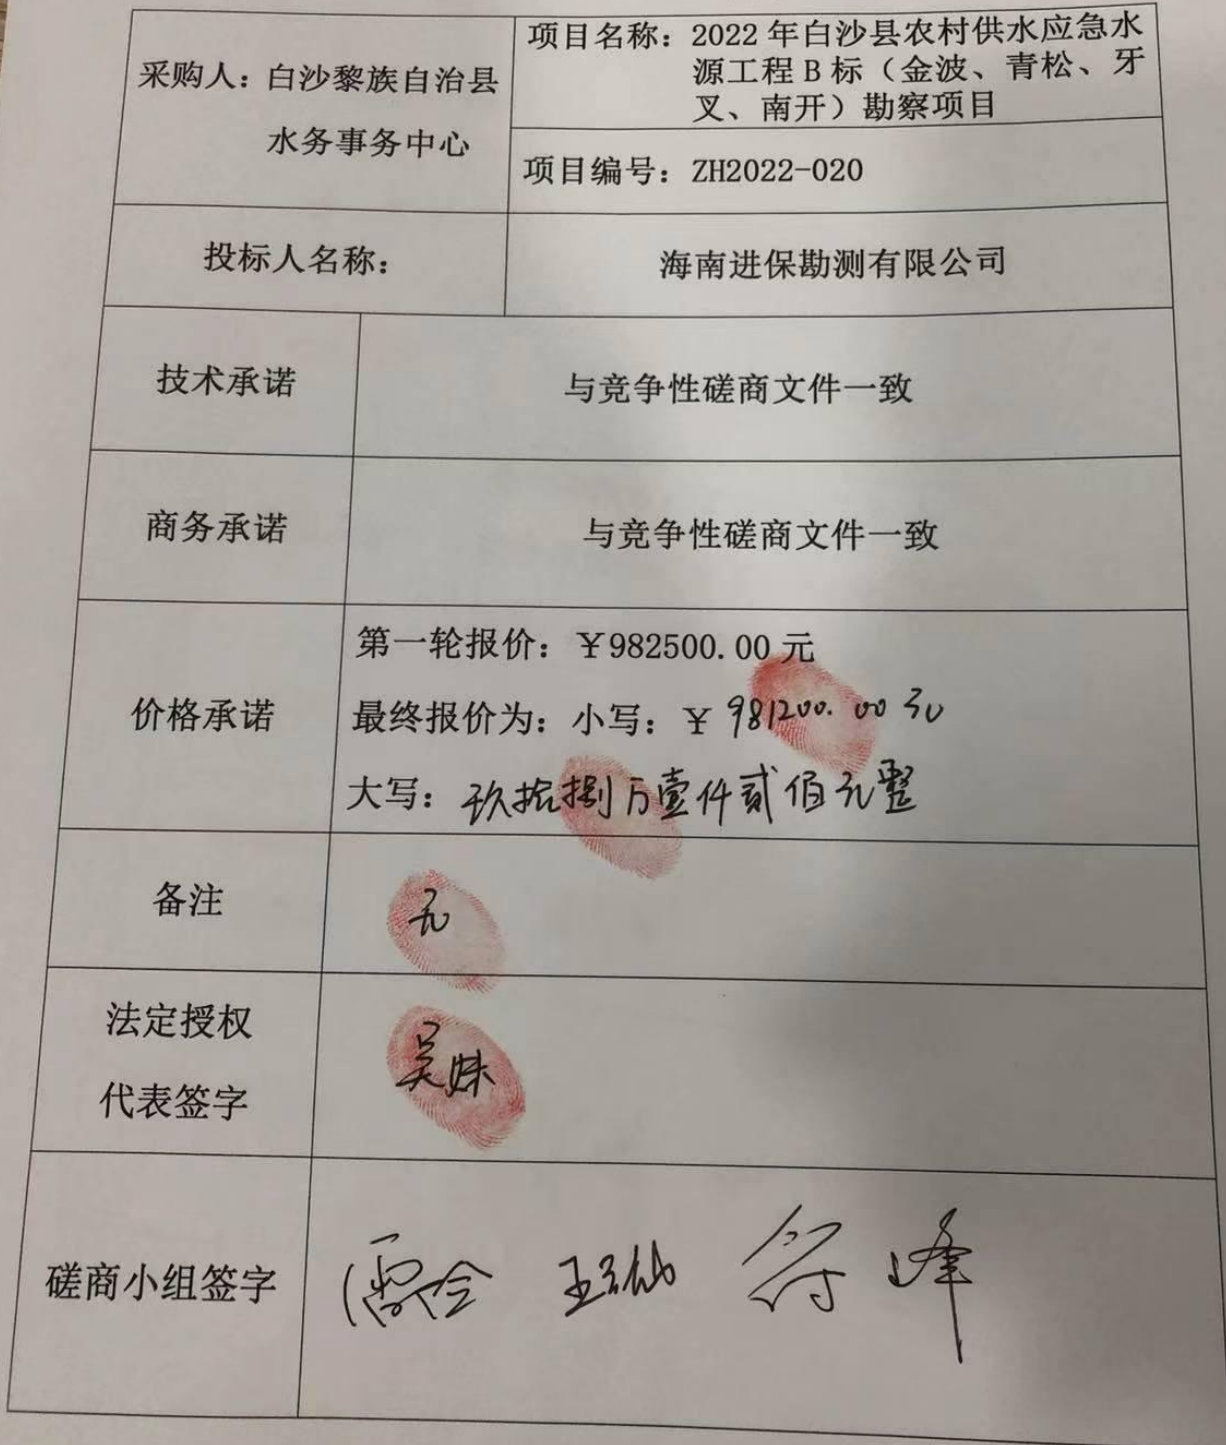 采购人：白沙黎族自治县
水务事务中心
项目名称：2022 年白沙县农村供水应急水
源工程 B 标（金波、青松、牙
叉、南开）勘察项目
项目编号：ZH2022-020
投标人名称：
海南进保勘测有限公司
技术承诺
与竞争性磋商文件一致
商务承诺
与竞争性磋商文件一致
价格承诺
第一轮报价：￥982500.00 元
最终报价为：小写：￥ 981200.00 元
大写：玖拾捌万壹仟贰佰元整
备注
无
法定授权
代表签字
吴妹
磋商小组签字
符峰